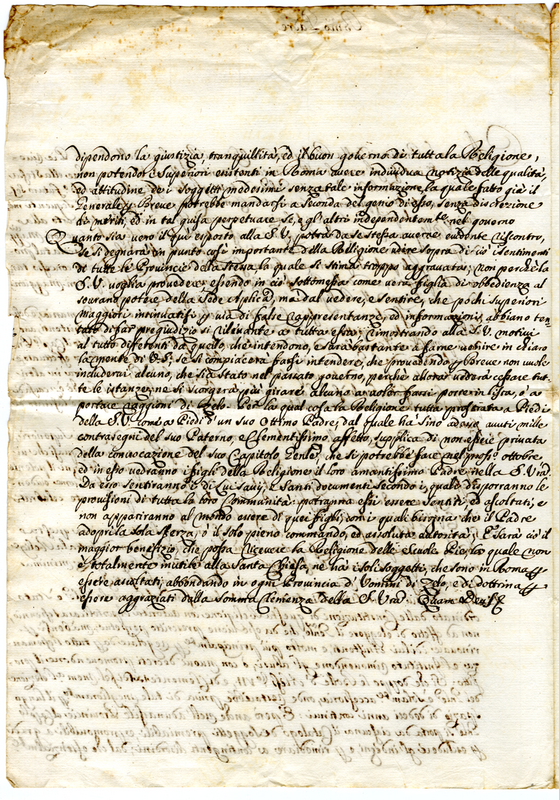 dipendono la giustizia, tranquillità, ed il buon governo di tutta la Religione,
non potendo i Superiori esistenti in Roma avere individua notizia delle qualità,
ed attitudine de i Soggetti medesimi senza tale informazione, la quale fatto già il
Generale p Breve potrebbe mandarsi a seconda del genio di esso, senza discrezione
di meriti, ed in tal guisa perpetuare se, e gl'altri independentemte nel governo
Quanto sia vero il qui esposto alla S.V. potrà da se stessa averne evidente riscontro,
se si degnarà in punto così importante della Religione udire sopra di ciò i sentimenti
di tutte le Provincie della stessa, la quale si stima troppo aggravata; non perchè la
S.V. voglia provedere, essendo in ciò sottomessa come vera figlia di obbedienza al
sovrano potere della Sede Aplica, ma dal vedere, e sentire, che pochi Superiori
maggiori intimidati p via di false rappresentanze, ed informazioni, abbiano ten
tato di far pregiudizio sì rilevante a tutta essa, rimostrando alla S.V. motivi
al tutto differenti da quello, che intendono, e sarà bastante a farne venire in chiaro
la mente di V.S. se si compiacerà farsi intendere, che provedendo p Breve non vuole
includervi alcuno, che sia stato nel passato governo, perchè allora vedrà cessare tut
te le istanze, ne si scorgerà più girare alcuno a voler porre in lista, o a
portare aggioni di Zelo. Per la qual cosa la Religione tutta prostrata a Piedi
della S.V. come a Piedi d'un suo Ottimo Padre, dal quale ha sino adesso avuti mille
contrasegni del suo Paterno, e Clementissimo affetto, supplica di non essere privata
della convocazione del suo Capitolo Genle, che si potrebbe fare nel prossº ottobre,
ed in esso vedranno i figli della Religione il loro amantissimo Padre nella S. Vra.
Da esso sentiranno i di Lui Savi, e Santi documenti, secondo i quali disporranno le
provisioni di tutta la loro Communità: potranno essi essere sentiti, ed ascoltati, e
non appariranno al Mondo essere di quei figli, con i quali bisogna che il Padre
adopri la sola sferza, ò il solo pieno commando, ed assoluta autorità; E sarà ciò il
maggior benefizio, che possa ricevere la Religione delle Scuole Pie, la quale non
è totalmente inutile alla Santa Chiesa, ne ha i soli Soggetti, che sono in Roma p
essere ascoltati, abbondando in ogni Provincia d'Uomini di Zelo, e di dottrina p
essere aggraziati dalla somma Clemenza della S. Vra. Quam Deus &c